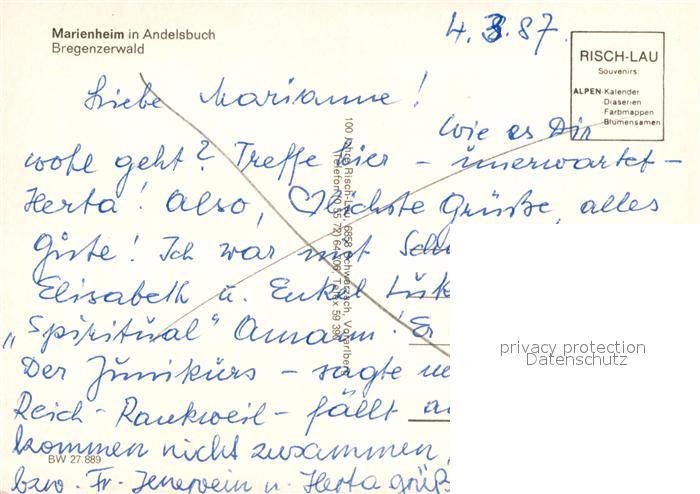 Marienheim in Andelsbuch
Bregenzerwald
4. 3. 87.
RISCH-LAU
Souvenirs:
ALPEN-Kalender
Diaserien
Farbmappen
Blumensamen
Liebe Marianne!
Wie es Dir
wohl geht? Treffe hier - unerwartet -
Herta! Also, ♡lichste Grüße, alles
Gute! Ich war mit
Elisabeth u. Enkel Luk
"Spiritual" Amann! Er
Der Junikurs - sagte
Reich - Rankweil - fällt
kommen nicht zusammen,
bzw. Fr. Jenewein u. Herta grüß
BW 27.889
100 Jahre Risch-Lau, 6858 Schwarzach, Vorarlberg
privacy protection
Datenschutz